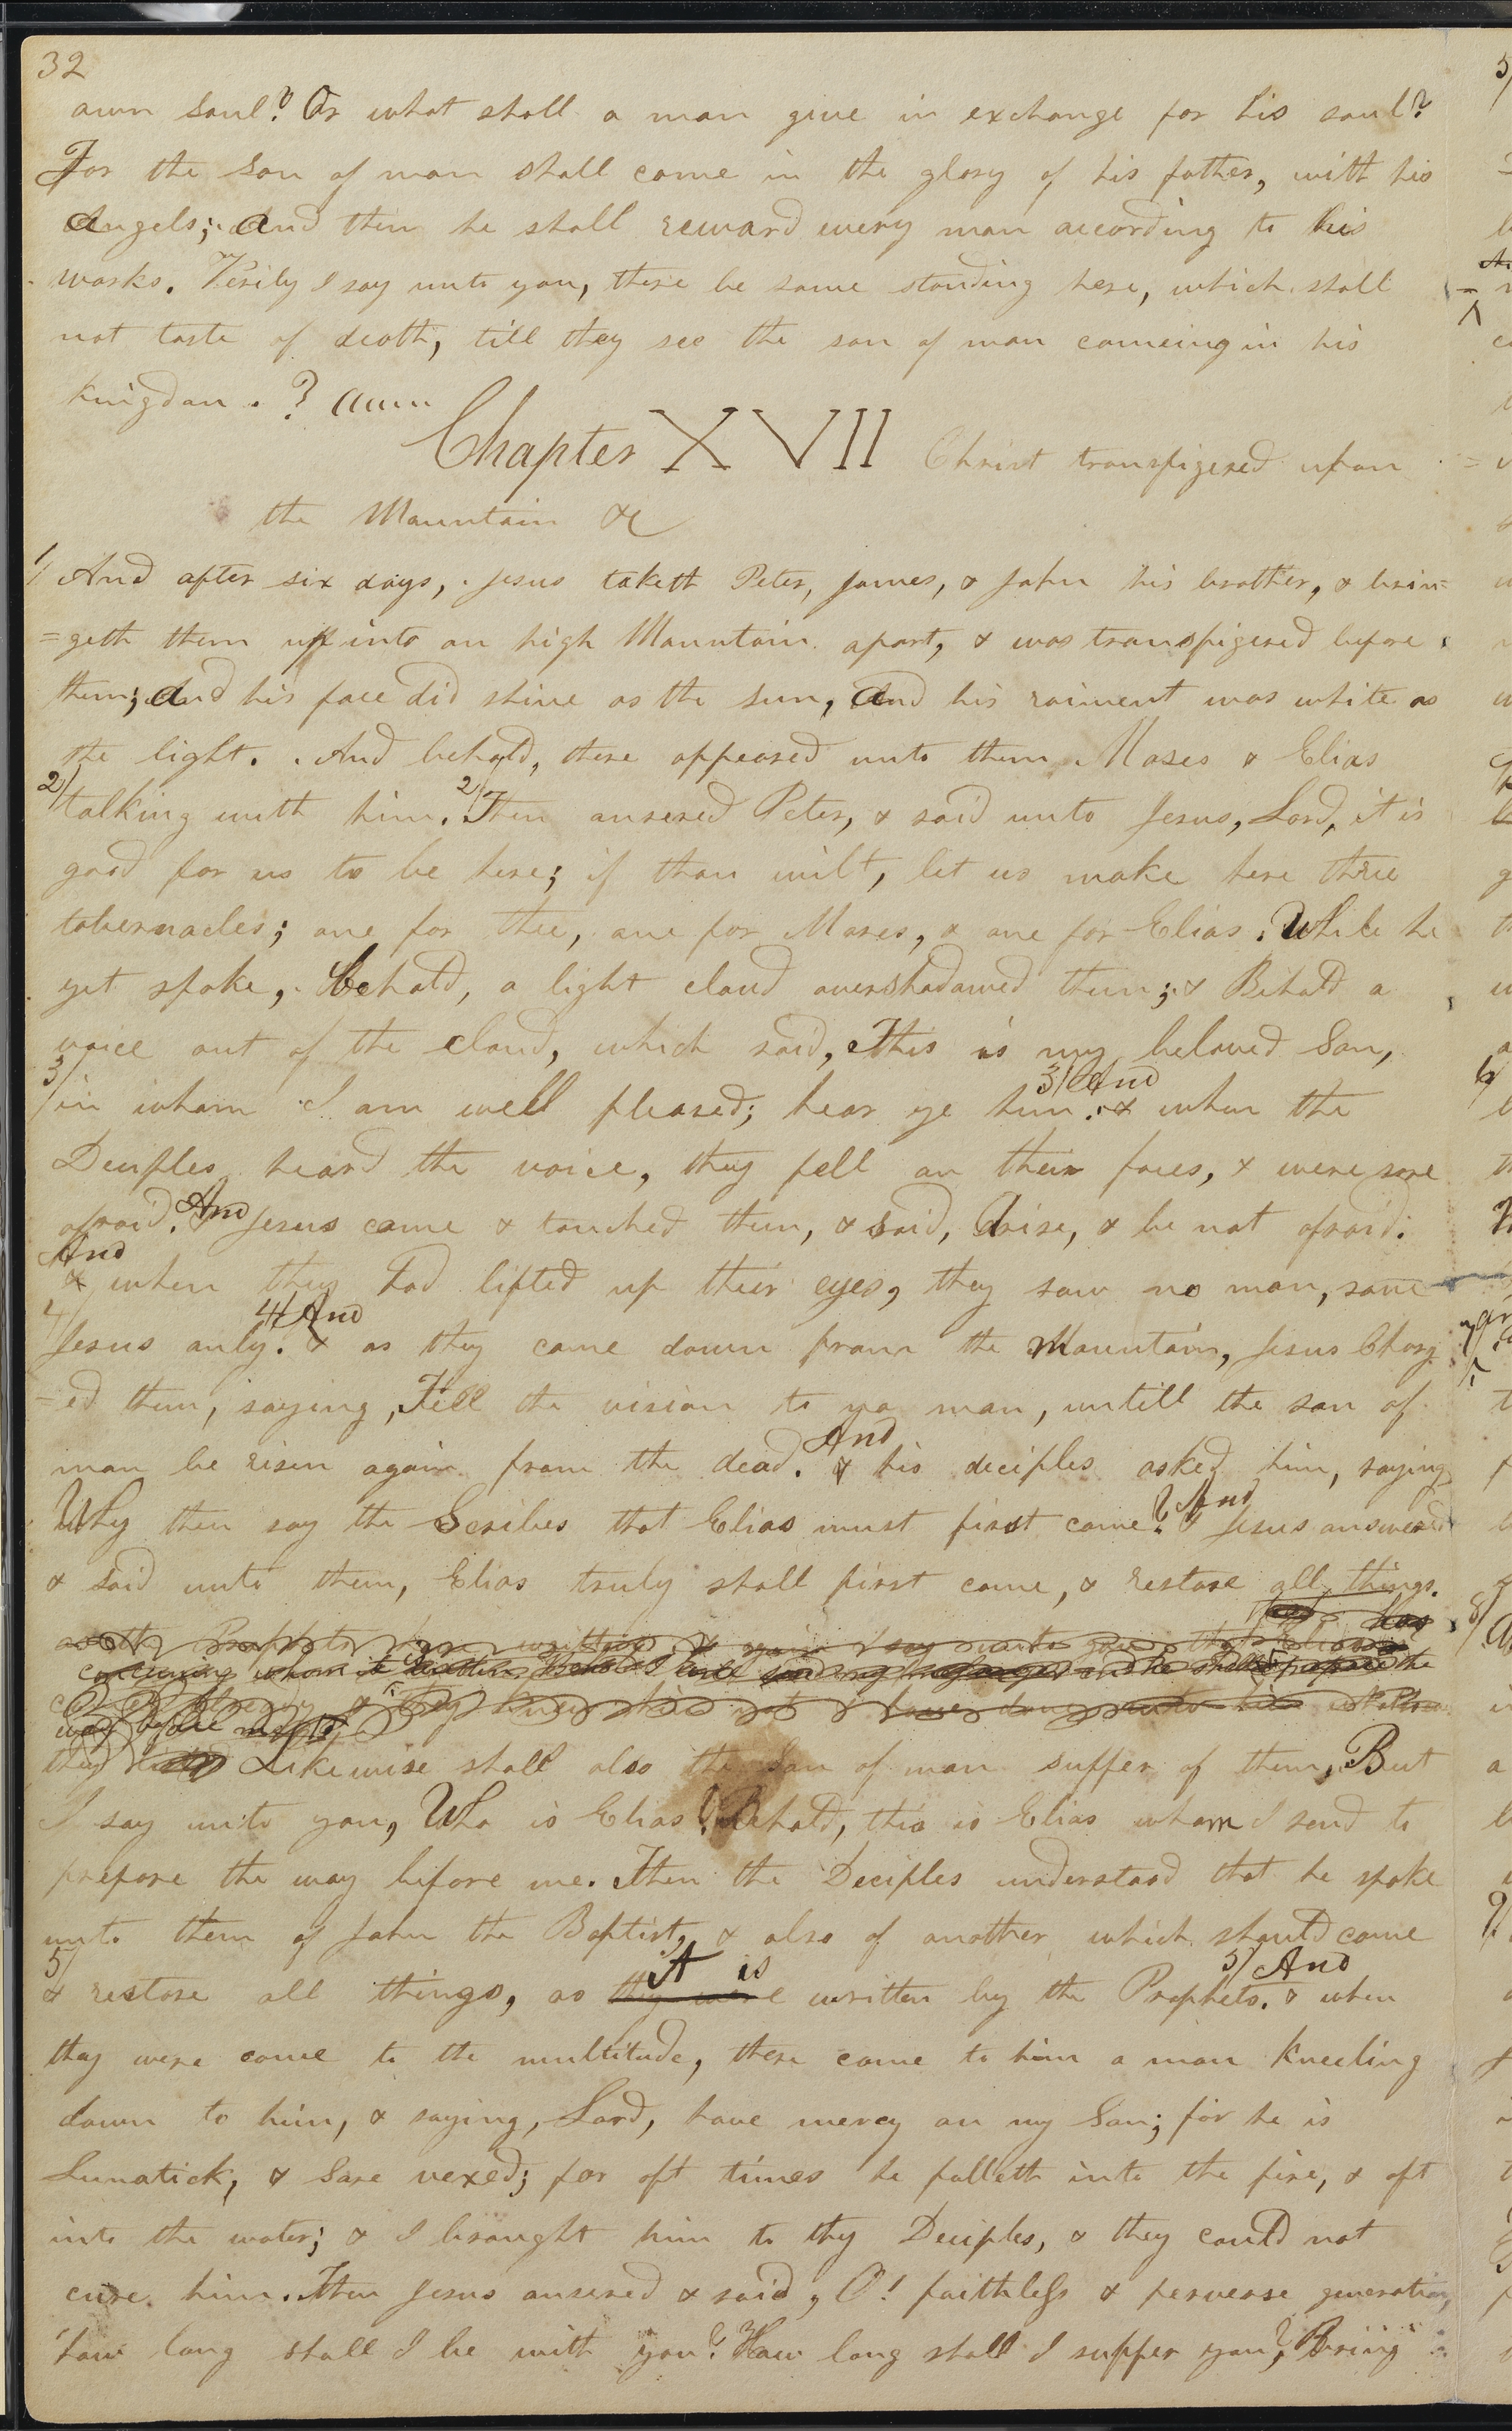 32
own soul? Or what shall a man give in exchange for his soul?
For the Son of man shall come in the glory of his father, with his
Angels; And then he shall reward every man according to his
works. Verily I say unto you, there be some standing here, which shall
not taste of death, till they see the son of man comeing in his
kingdom.
Chapter XVII Christ transfigered upon
the Mountain &c
1/ And after six days, Jesus taketh Peter, James, & John his brother, & brin=
=geth them up into an high Mountain apart, & was transfigered before
them; And his face did shine as the sun, And his raiment was white as
the light. And behold, there appeared unto them Moses & Elias
2/ talking with him. 2/ Then ansered Peter, & said unto Jesus, Lord, it is
good for us to be here; if thou wilt, let us make here three
tabernacles; one for thee, one for Moses, & one for Elias. While he
yet spoke, behold, a light cloud overshadowed them; & Behold a
voice out of the cloud, which said, This is my beloved Son,
3/ And
3/ in whom I am well pleased; hear ye him. & when the
Deciples heard the voice, they fell on their faces, & were sore
afraid. And Jesus came & touched them, & said, Arise, & be not afraid.
And
& when they had lifted up their eyes, they saw no man, save
4/ 4/ And
Jesus only. & as they came down from the Mountain, Jesus Charg
=ed them, saying, Tell the vision to no man, untill the son of
And
man be risen again from the dead. & his deciples asked him, saying
Why then say the Scribes that Elias must first come? And Jesus answered
& said unto them, Elias truly shall first come, & restore all things.
as the Prophets have written & again I say unto you that Elias has
concerning whom it is written, Behold I will send my messenger and he shall prepare the
come already & they knew him not & have done unto him whatsoever
way before me
they Likewise shall also the Son of man suffer of them, But
I say unto you, Who is Elias? Behold, this is Elias whom I send to
prepare the way before me. Then the Deciples understood that he spoke
unto them of John the Baptist, & also of another which should come
5/ it is 5/ And
& restore all things, as they were written by the Prophets. & when
they were come to the multitude, there come to him a man kneeling
down to him, & saying, Lord, have mercy on my Son; for he is
Lunatick, & Sore vexed; for oft times he falleth into the fire, & oft
into the water; & I brought him to thy Deciples, & they could not
cure him. Then Jesus ansered & said, O! faithless & perverse generation,
how long shall I be with you? How long shall I suffer you? Bring